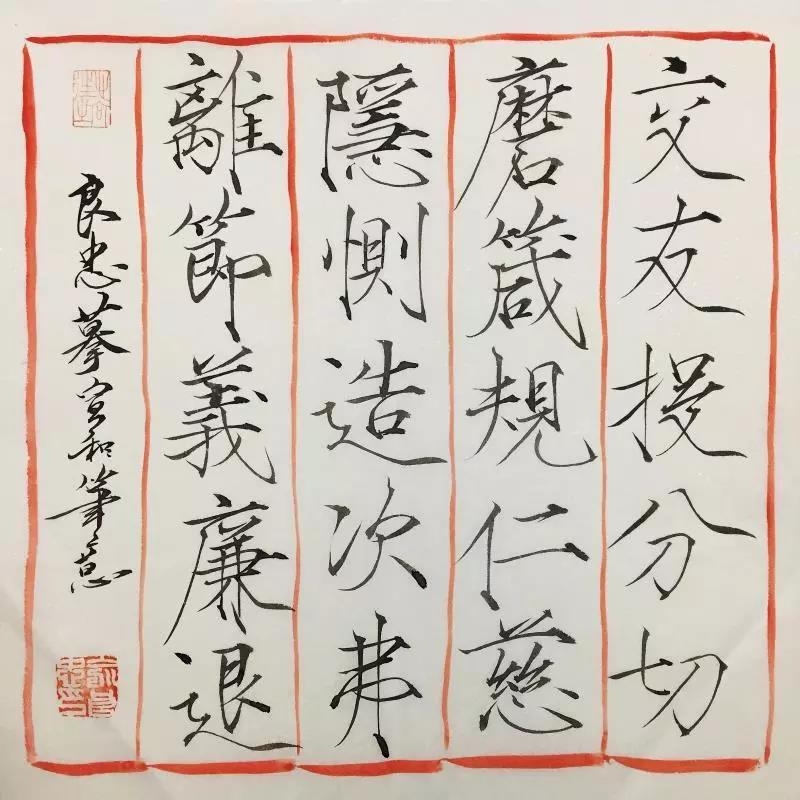 交友投分切
磨箴規仁慈
隱惻造次弗
離節義廉退
良忠摹宣和筆意